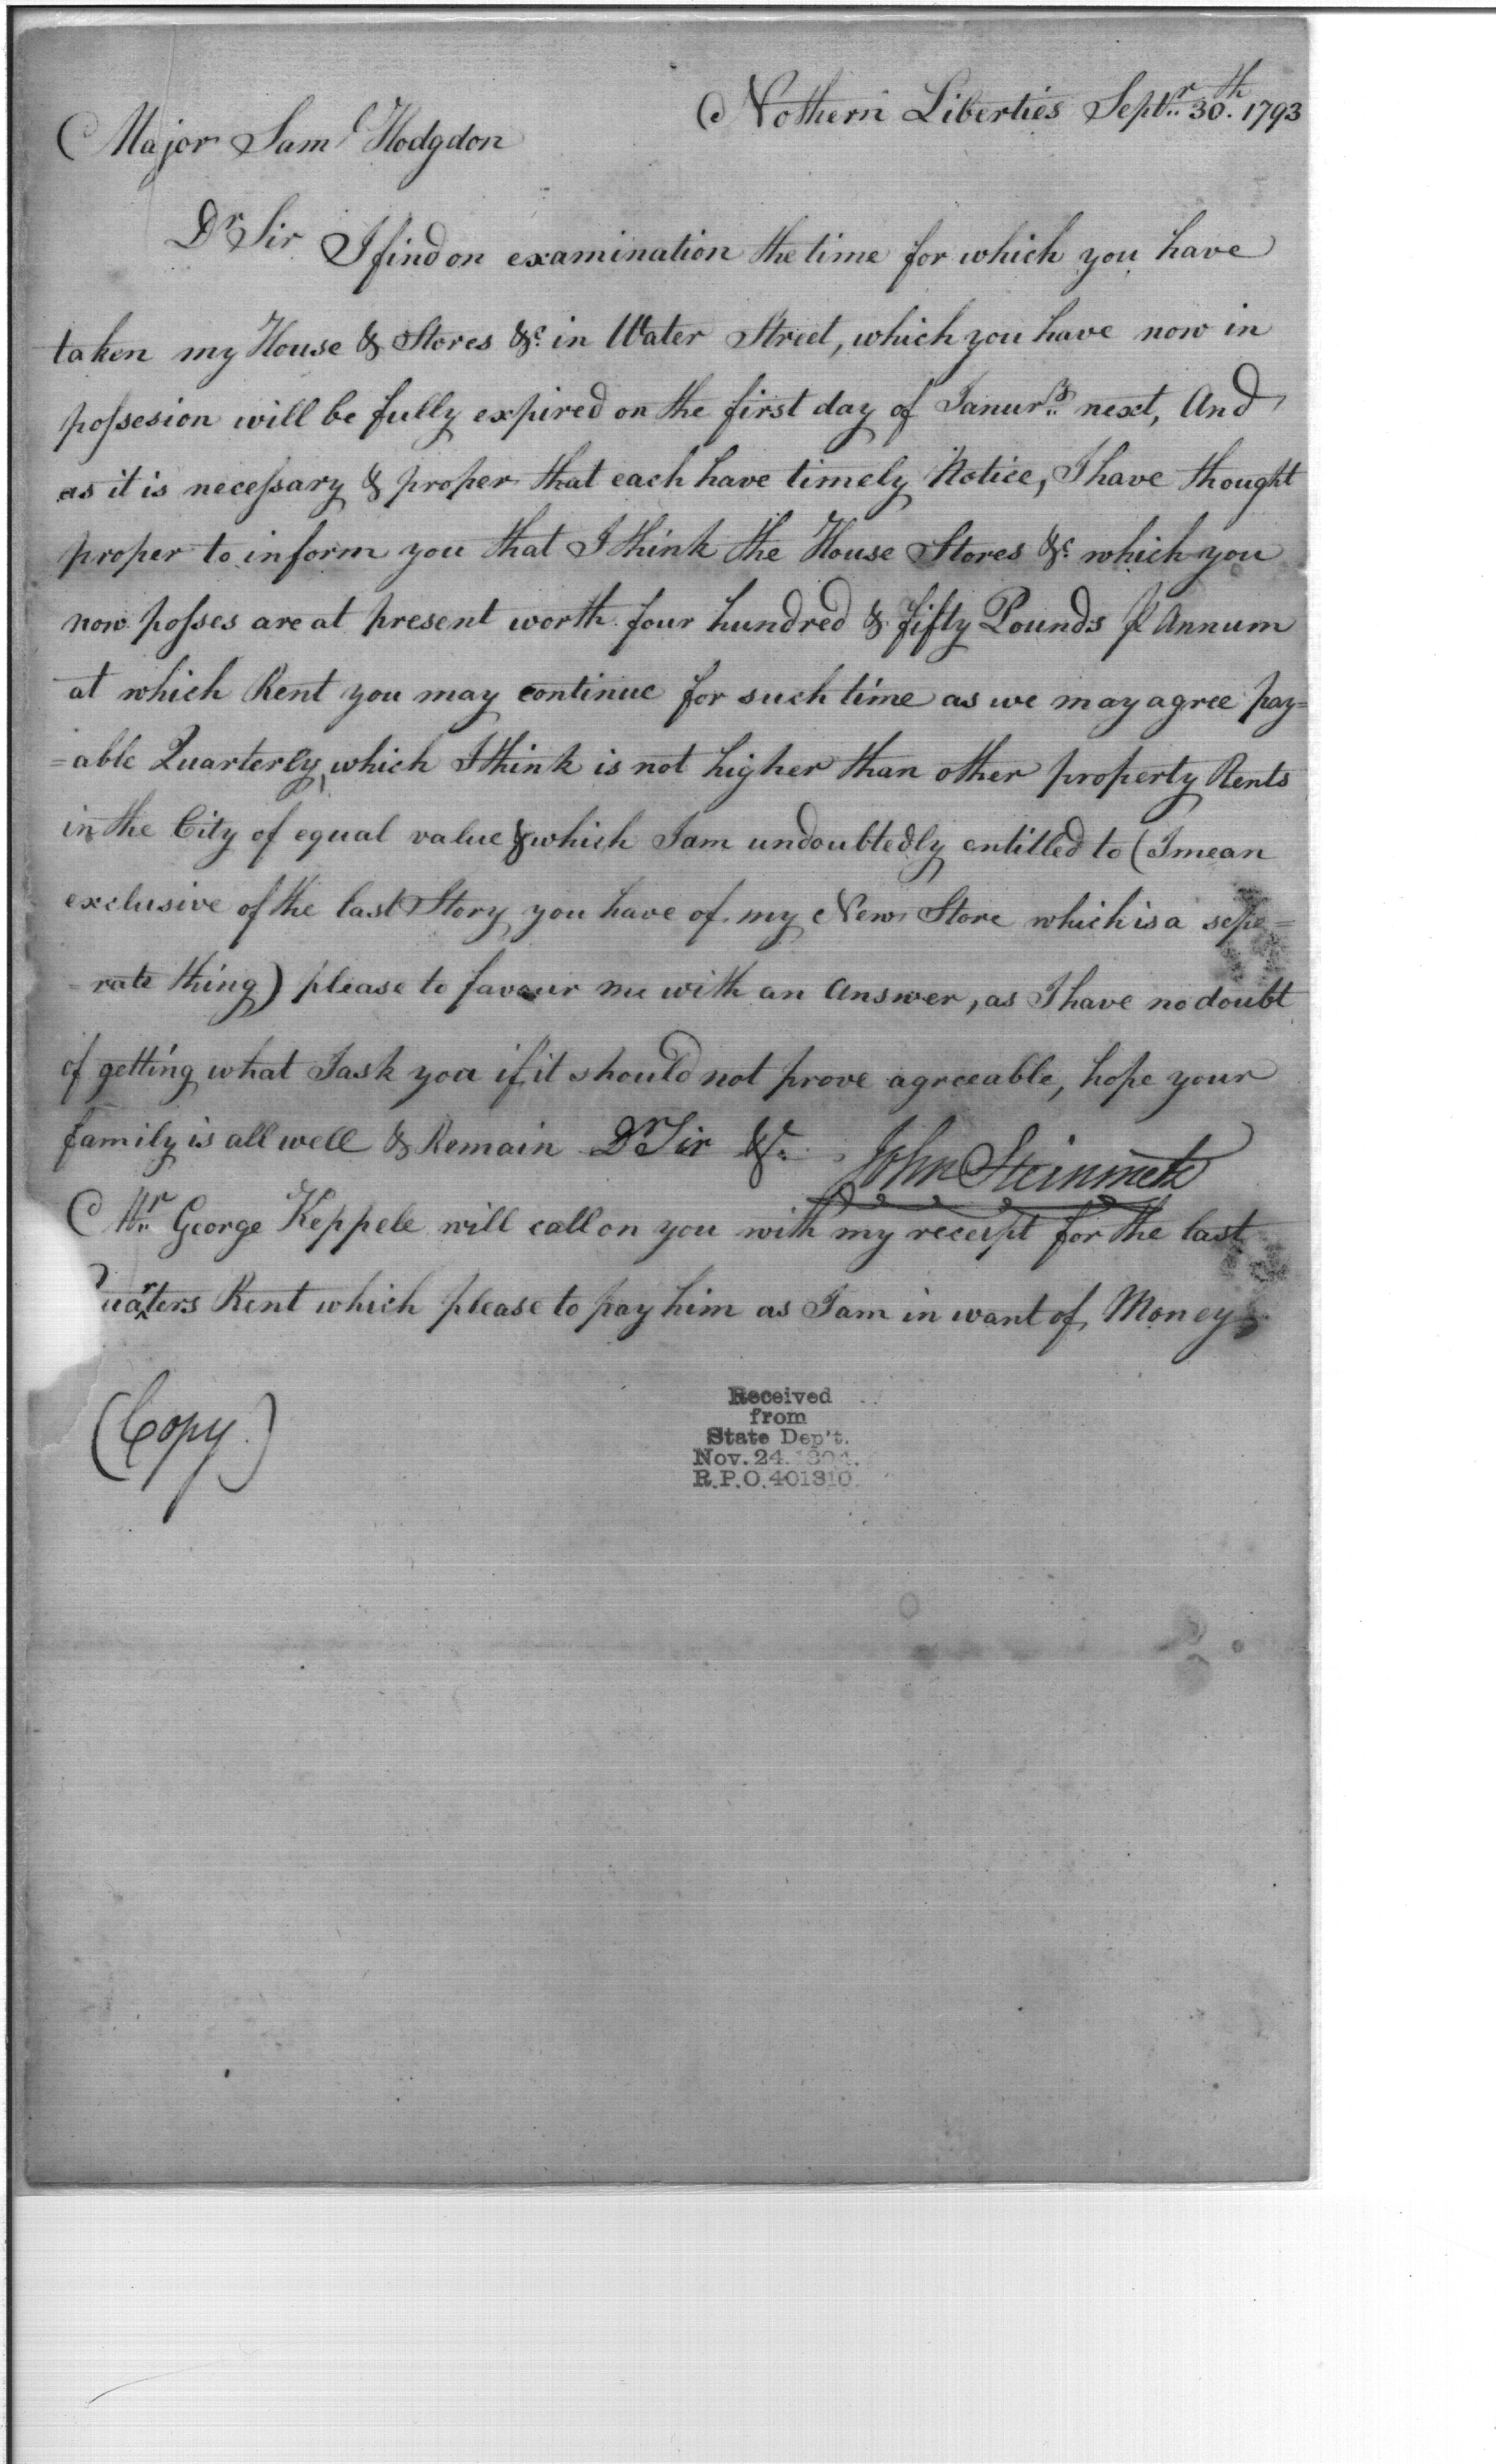 Nothern Liberties Septr. 30th. 1793
Major Saml Hodgdon
Dr Sir I find on examination the time for which you have
taken my House & Stores &c. in Water Street, which you have now in
possesion will be fully expired on the first day of Janury. next, And
as it is necessary & proper that each have timely Notice, I have thought
proper to inform you that I think the House Stores &c. which you
now posses are at present worth four hundred & fifty Pounds ⅌ Annum
at which Rent you may continue for such time as we may agree pay=
=able Quarterly, which I think is not higher than other property Rents
in the City of equal value & which I am undoubtedly entitled to (I mean
exclusive of the last Story you have of my New Store which is a sepe=
=rate thing) please to favour me with an Answer, as I have no doubt
of getting what I ask you if it should not prove agreeable, hope your
family is all well & Remain Dr Sir &c.
John Steinmetz
Mr. George Keppele will call on you with my receipt for the last
Quarters Rent which please to pay him as I am in want of Money
(Copy.)
Received
from
State Dep't.
Nov. 24. 1894.
R.P.O. 401310.